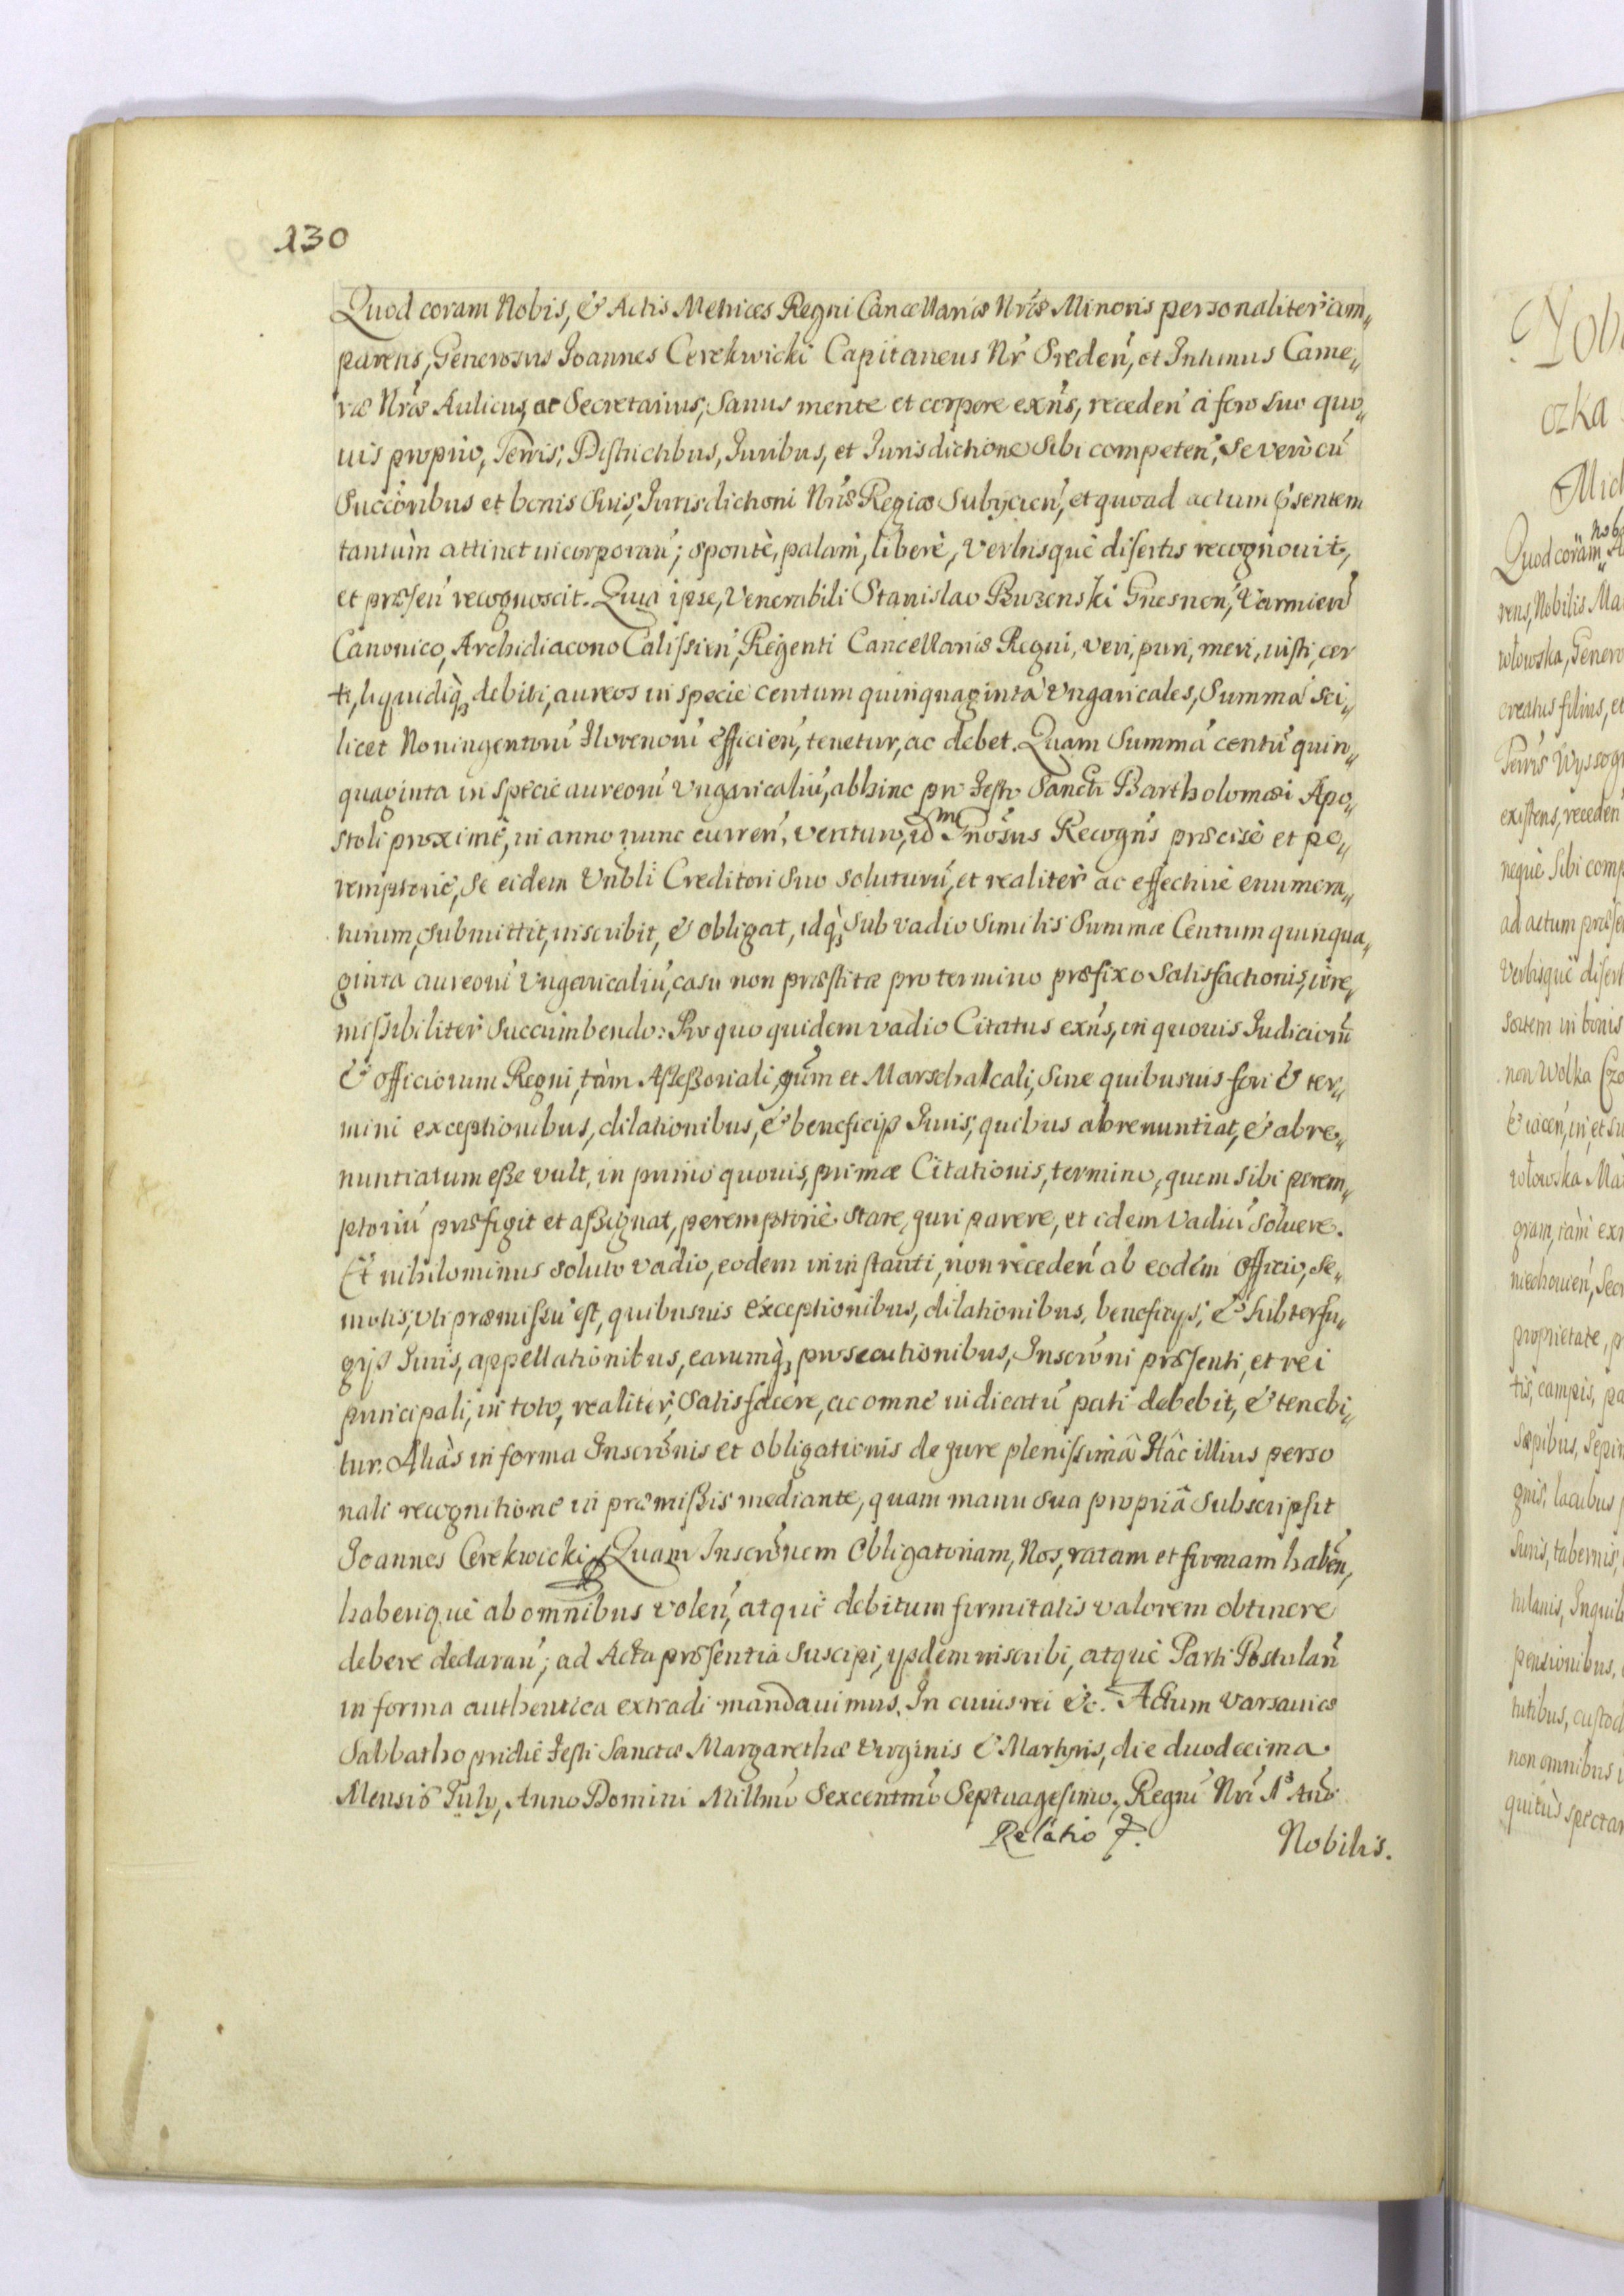 130
Quod coram Nobis, & Actis Metrices Regni Cancellariæ Nræ Minoris personaliter com„
parens, Generosus Joannes Cerekwicki Capitaneus Nr̃ Sreden̄, et Intimus Came„
ræ Nræ Aulicus, ac Secretarius, Sanus mente et corpore exñs, receden̄ à foro suo quo„
uis proprio, Terris, Districtibus, Juribus, et Jurisdictione Sibi competen̄, Se verò cū
Succõribus et bonis Suis, Jurisdictioni Nræ Regiæ Subijcien̄, et quoad actum pñsentem
tantùm attinet incorporan̄; Spontè, palam, liberè, Verbisquè disertis recognouit,
et præsen̄ recognoscit. Quia ipse, Venerabili Stanislao Buzenski Gnesnen̄, Varmien̄
Canonico, Archidiacono Calissien̄, Regenti Cancellariæ Regni, veri, puri, meri, iusti, cer
ti, liquidiq̀ꝫ debiti, aureos in specie centum quinquaginta Vngaricales, Summã sci„
licet Noningentorũ Florenorũ efficien̄, tenetur, ac debet. Quam Summã centũ quin„
quaginta in Specie aureorũ Vngaricaliũ, abhinc pro Festo Sancti Bartholomæi Apo„
stoli proximè, in anno nunc curren̄, venturo, idem Gnõsus Recogñs præcisè et pe„
remptoriè, Se eidem Vnbli Creditori Suo soluturũ, et realiter ac effectiuè enumera„
turum, Submittit, inscribit, & obligat, idq̀ꝫ Sub vadio Similis Summæ Centum quinqua„
ginta aureorũ Vngaricaliũ, casu non præstitæ pro termino præfixo Satisfactionis, irre„
missibiliter Succumbendo: Pro quo quidem vadio Citatus exñs, in quouis Judiciorũ
& officiorum Regni, tàm Assessoriali, quãm et Marschalcali, Sine quibusuis fori & ter„
mini exceptionibus, dilationibus, & beneficijs Juris, quibus abrenuntiat, & abre„
nuntiatum esse vult, in primo quouis, primæ Citationis, termino, quem Sibi perem„
ptoriũ præfigit et assignat, peremptoriè Stare, juri parere, et idem Vadiũ Soluere.
Et nihilominus soluto vadio, eodem in instanti, non receden̄ ab eodem Officio, Se„
motis, Vti præmissũ est, quibusuis exceptionibus, dilationibus, beneficijs, & Subterfu„
gijs Juris, appellationibus, earumq̀ꝫ prosecutionibus, Inscrõni præsenti, et rei
principali, in toto, realiter, Satisfacere, ac omne iudicatũ pati debebit, & tenebi„
tur. Aliàs in forma Inscrõnis et obligationis de jure plenissimâ Hâc illius perso
nali recognitione in præmissis mediante, quam manu sua propriâ Subscripsit
Joannes Cerekwicki. Quam Inscrõnem Obligatoriam, Nos, ratam et firmam haben̄,
haberiquè ab omnibus volen̄, atquè debitum firmitatis valorem obtinere
debere declaran̄; ad Acta præsentia Suscipi, ijsdem inscribi, atquè Parti Postulan̄
in forma authentica extradi mandauimus. In cuius rei &c. Actum Varsauiæ
Sabbatho pridiè Festi Sanctæ Margarethæ Virginis & Martyris, die duodecima
Mensis July, Anno Domini Millmõ Sexcentmõ Septuagesimo, Regni Nri 1º Anõ
Relatio
Nobilis.
Quod coram Nob
rens, Nobilis Ma
wlowska, Genero
creatus filius, et
existens, receden̄
nequè Sibi comp
ad actum præse
Verbisquè disert
Sortem in bonis
non Wolka Czo
wlowska Ma
proprietate, p
tis, campis, pa
gnis, lacubus
Juris, tabernis,
pensionibus,
non omnibus